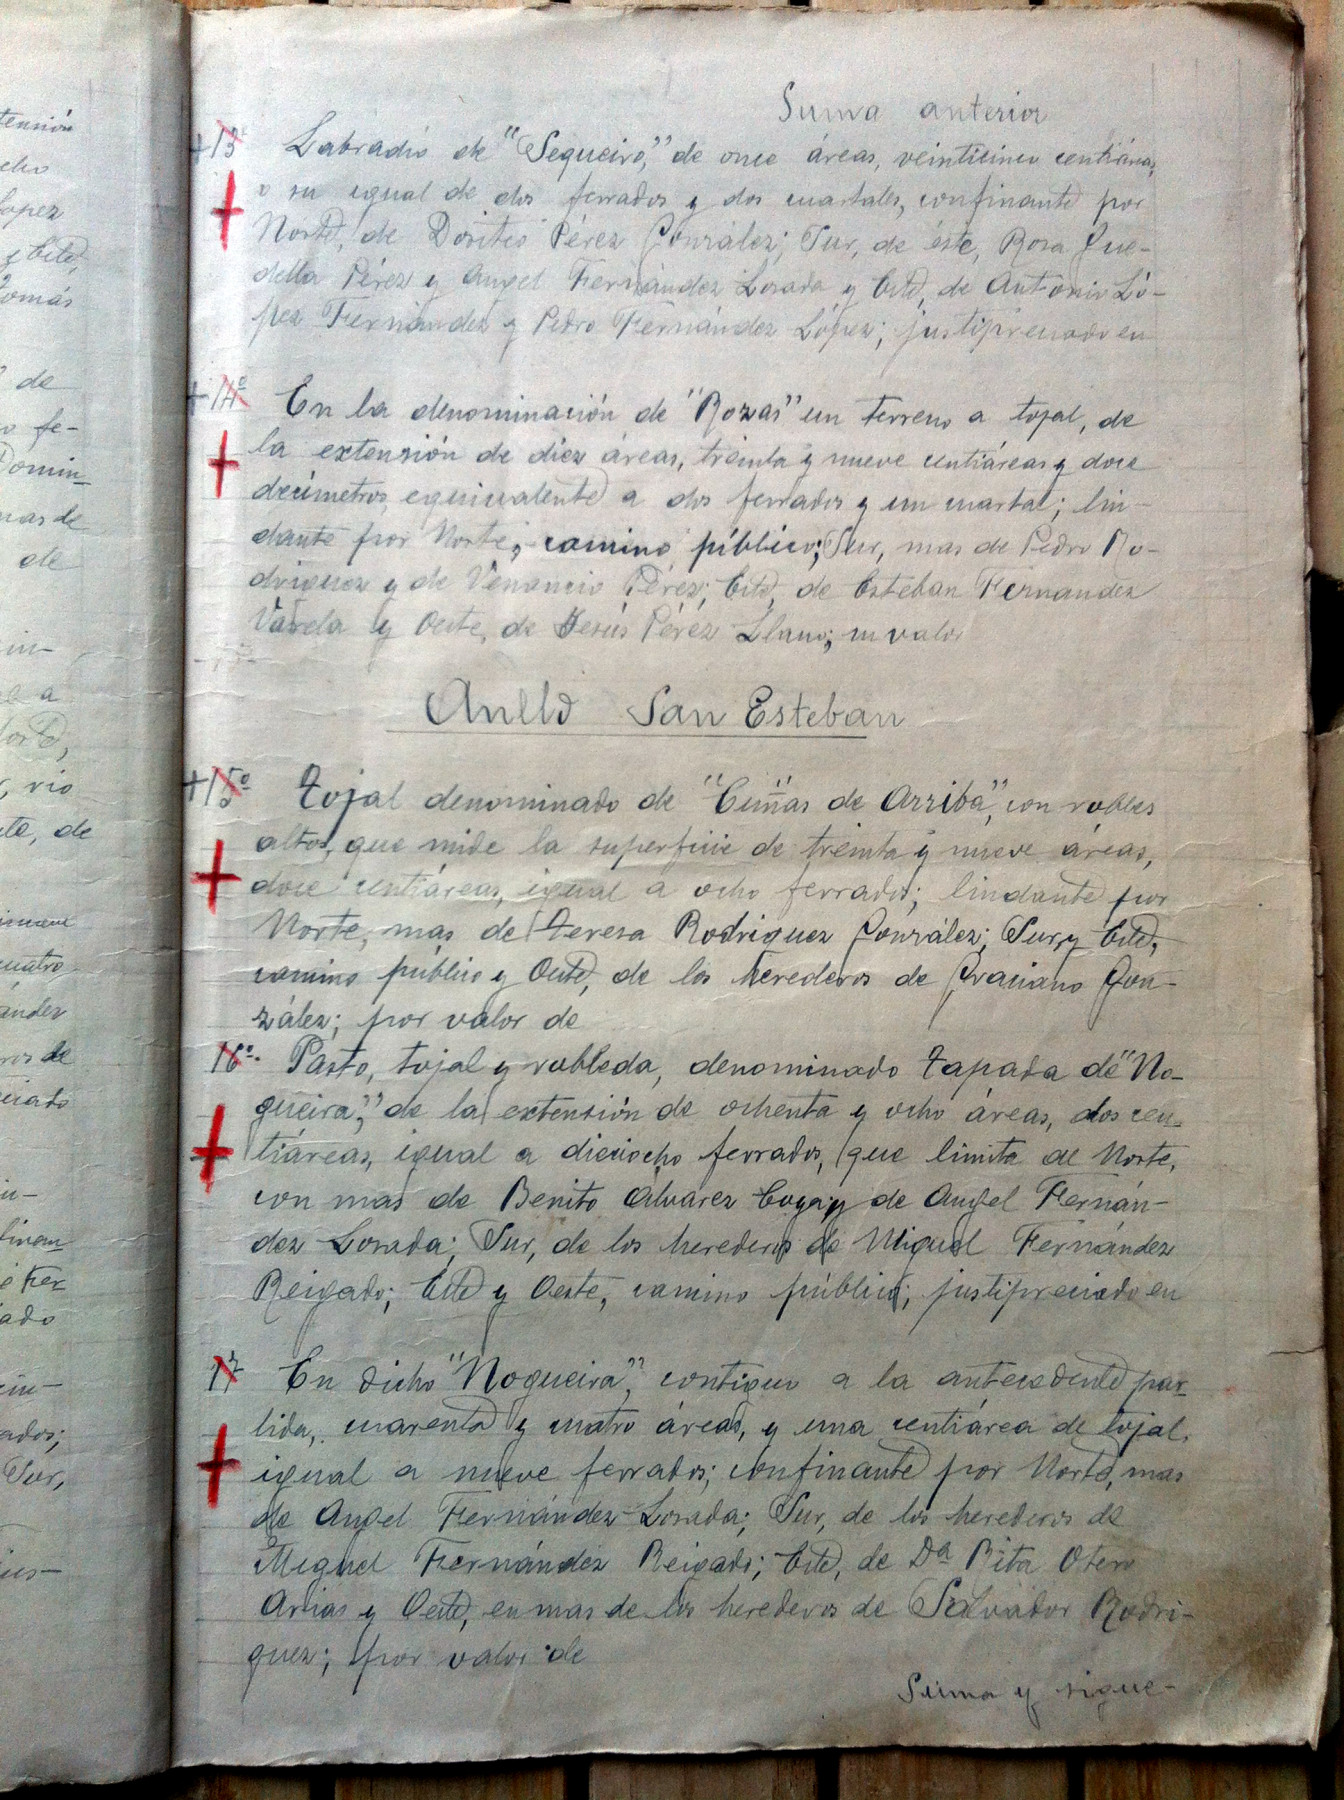 tensión
lopez
Tomás
de
fe-
Domin-
mas de
de
in-
a
rio
de
cuatro,
ández
de
in-
Fer
ados;
Sur,
jus-
Suma anterior
+13º Labradío de "Sequeiro," de once áreas, veinticinco centiáreas,
o su igual de dos ferrados y dos cuartales, confinante por
Norte, de Dositeo Pérez González; Sur, de éste, Rosa Que-
della Pérez y Angel Fernández Losada y Este, de Antonio Ló-
pez Fernández y Pedro Fernández López; justipreciado en
+14º En la denominación de "Rozas" un terreno a tojal, de
la extensión de diez áreas, treinta y nueve centiáreas y doce
decímetros, equivalente a dos ferrados y un cuartal; lin-
dante por Norte, camino público; Sur, mas de Pedro Ro-
driguez y de Venancio Pérez; Este, de Esteban Fernandez
Varela y Oeste, de Jesús Pérez Llano; su valor
Anlló San Esteban
+15º Tojal denominado de "Cimas de Arriba", con robles
altos, que mide la superficie de treinta y nueve áreas,
doce centiáreas, igual a ocho ferrados; lindante por
Norte, mas de Teresa Rodriguez González; Sur y Este,
camino publico y Oeste, de los herederos de Graciano Gon-
zález; por valor de
16º Pasto, tojal y robleda, denominado Tapada de "No-
gueira", de la extensión de ochenta y ocho áreas, dos cen-
tiáreas, igual a dieciocho ferrados, que limita al Norte,
con mas de Benito Alvarez Coya y de Angel Fernán-
dez Losada; Sur, de los herederos de Miguel Fernández
Reigado; Este y Oeste, camino público; justipreciado en
17 En dicho "Nogueira", contiguo a la antecedente par-
tida, cuarenta y cuatro áreas, y una centiárea de tojal,
igual a nueve ferrados; confinante por Norte, mas
de Angel Fernández Losada; Sur, de los herederos de
Miguel Fernández Reigado; Este, de Dª Rita Otero
Arias y Oeste, en mas de los herederos de Salvador Rodri-
guez; por valor de
Suma y sigue-